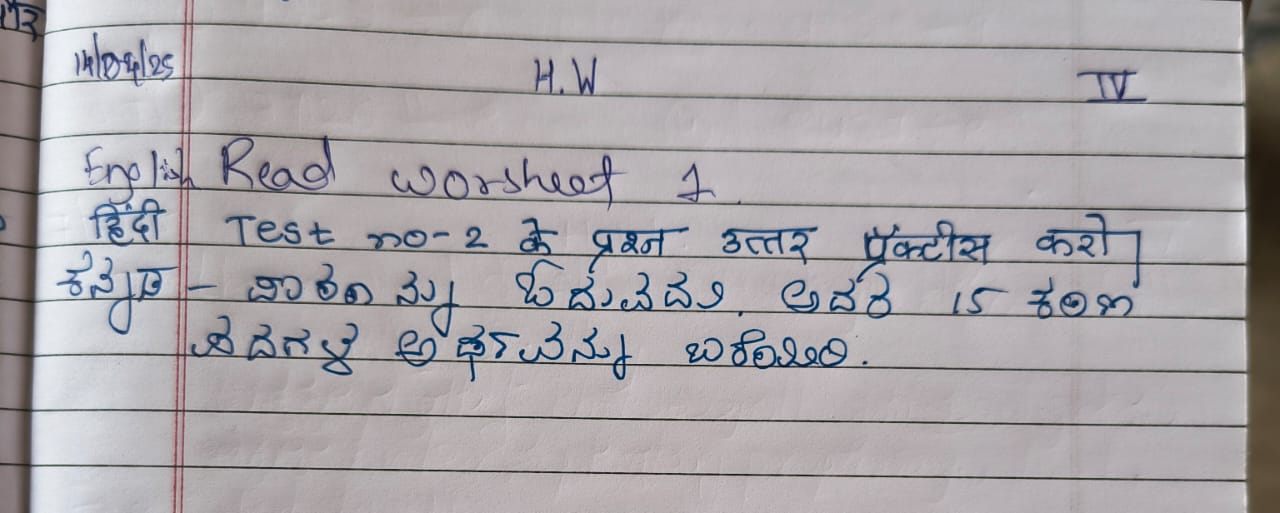 14/04/25 H.W IV
English Read worsheet 1.
हिंदी Test no-2 के प्रश्न उत्तर प्रॅक्टीस करो
ಕನ್ನಡ - ಪಾಠವನ್ನು ಓದುವುದು. ಅದರ 15 ಕಠಿಣ
ಪದಗಳ ಅರ್ಥವನ್ನು ಬರೆಯಿರಿ.